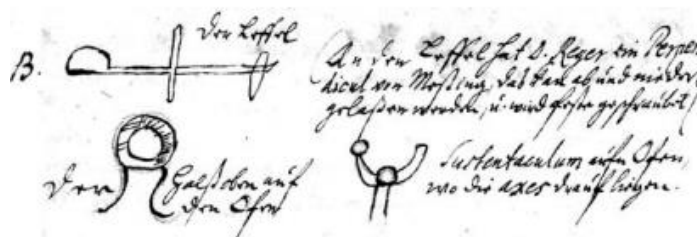 der Leffel
B.
An den Leffel hat D. Reger ein Perpen
dicul von Meßing, das kan ab und nieder
gelaßen werden, u. wird feste geschraubet
der Halß oben auf
den Ofen
Sustentaculum aufn Ofen,
wo die axes drauf liegen.